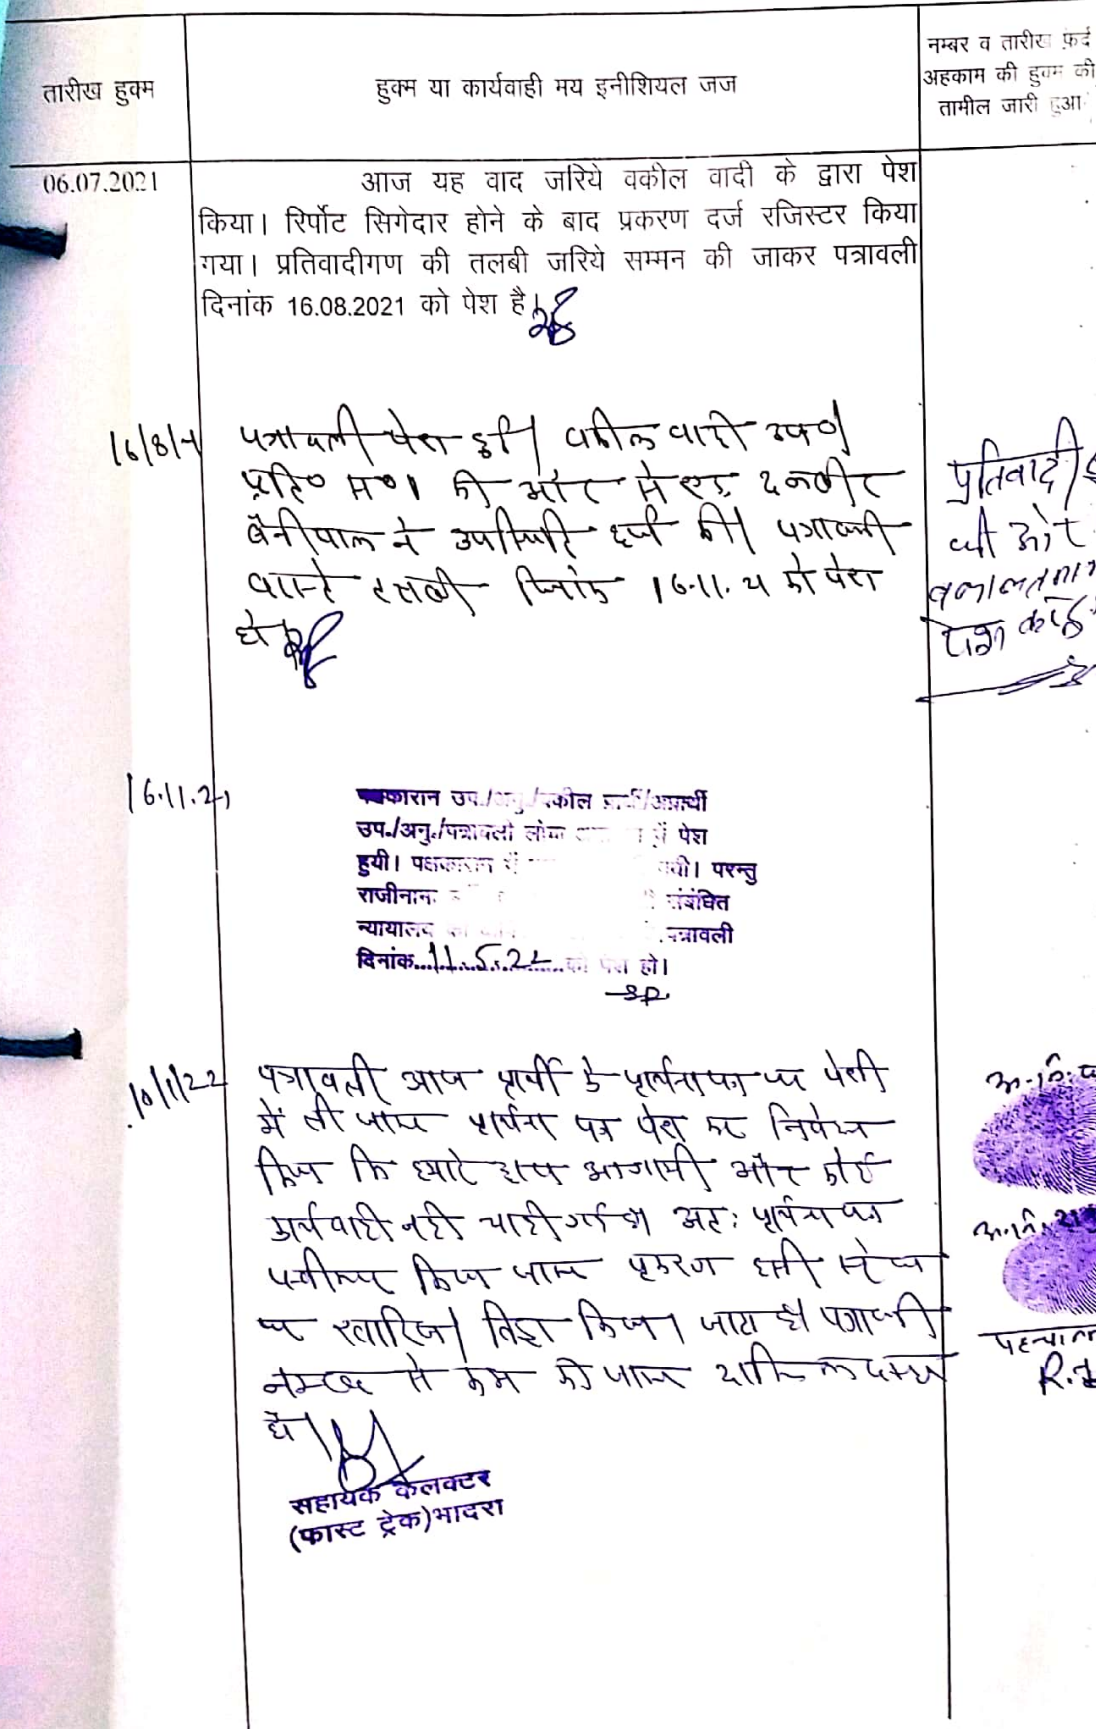 तारीख हुक्म
हुक्म या कार्यवाही मय इनीशियल जज
नम्बर व तारीख फ़र्द
अहकाम की हुक्म की
तामील जारी हुआ
06.07.2021
आज यह वाद जरिये वकील वादी के द्वारा पेश
किया। रिर्पोट सिगेदार होने के बाद प्रकरण दर्ज रजिस्टर किया
गया। प्रतिवादीगण की तलबी जरिये सम्मन की जाकर पत्रावली
दिनांक 16.08.2021 को पेश है।
पत्रावली पेश हुई। वकील वादी उप०।
प्रति० स०1 की और से एड.
बैनीवाल ने उपस्थिति दर्ज की। पत्रावली
वास्ते तलबी दिनांक 16.11.21 को पेश
हो।
प्रतिवादी
की ओर
वकालतनामा
पेश
16.11.21
पक्षकारान उप./अनु./वकील प्रार्थी/अप्रार्थी
उप./अनु./पत्रावली लोक में पेश
हुयी। पक्षकारान में गयी। परन्तु
राजीनामा संबंधित
न्यायालय पत्रावली
दिनांक 11.5.22 को पेश हो।
10/1/22
पत्रावली आज प्रार्थी के प्रार्थनापत्र पर पेशी
में ली जाकर प्रार्थना पत्र पेश कर निवेदन
किया कि हमारे द्वारा आगामी और कोई
कार्यवाही नही चाही गई है। अतः प्रार्थनापत्र
स्वीकार किया जाकर प्रकरण इसी स्टेज
पर खारिज। किया जाता है। पत्रावली
नम्बर से कम की जाकर दाखिल दफ्तर
हो।
सहायक कलक्टर
(फास्ट ट्रेक) भादरा